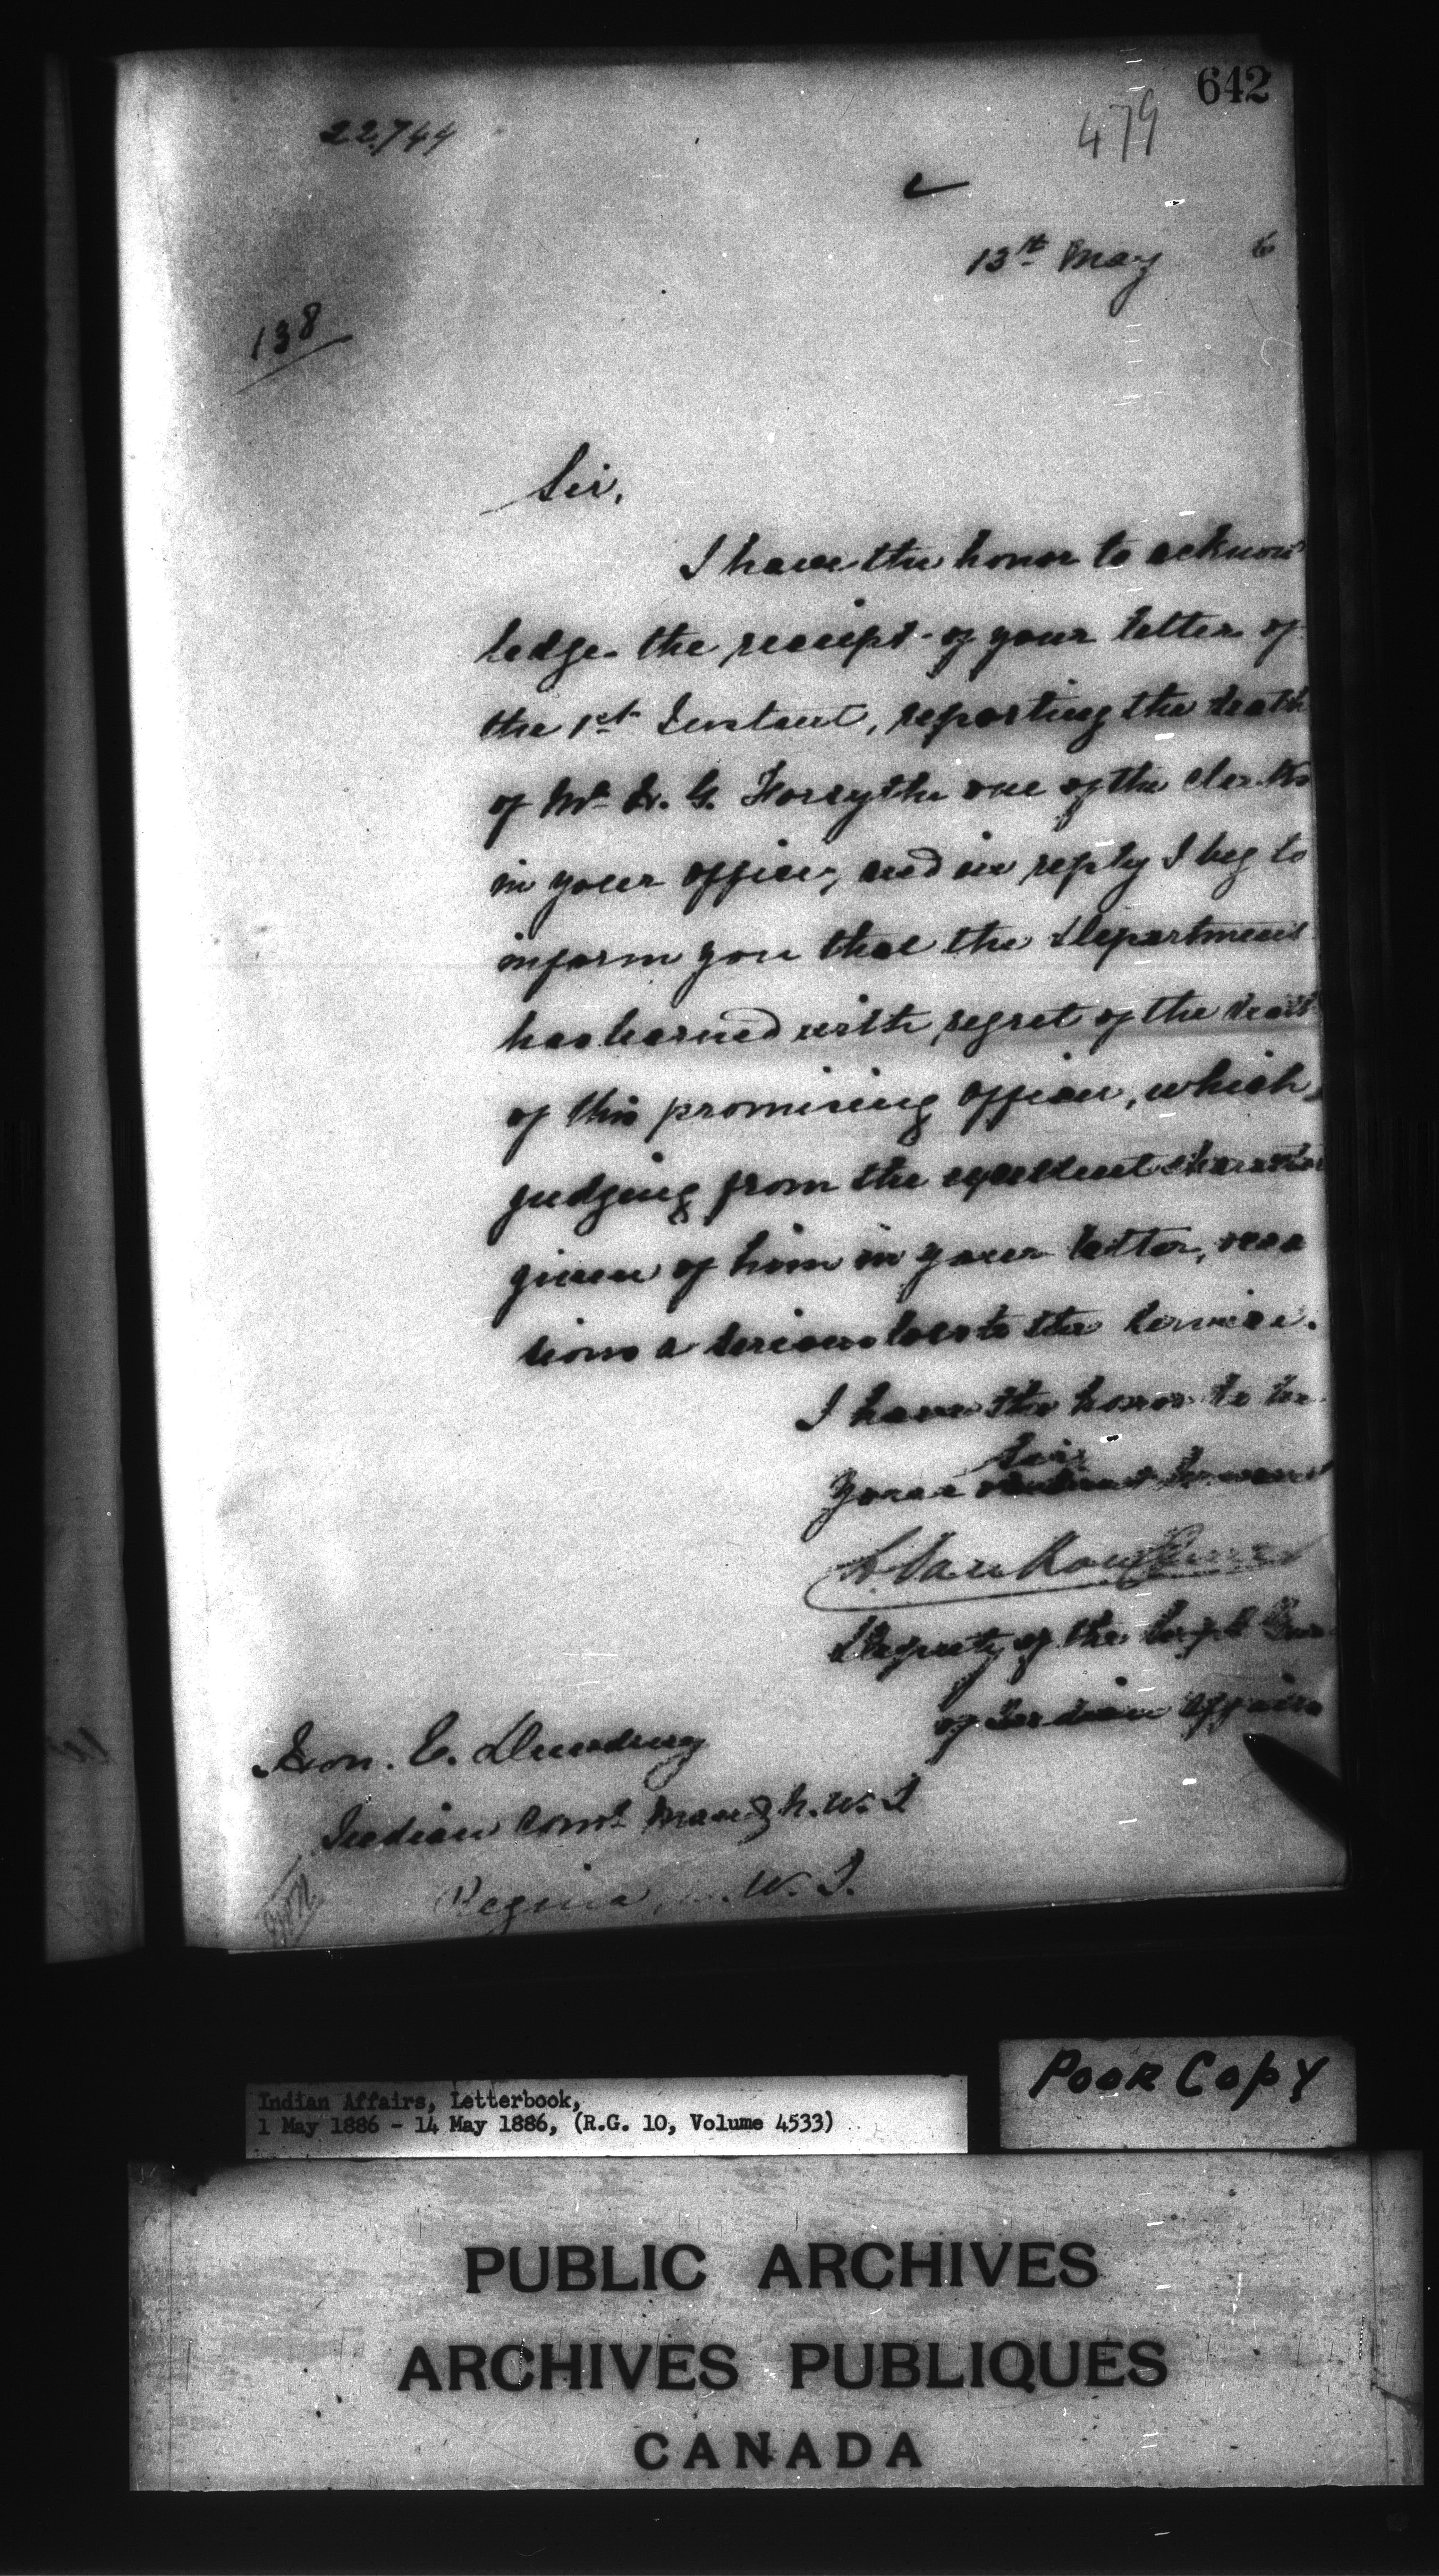 642
479
22.744
13th May 6
138
Sir,
I have the honor to acknow
ledge the receipt of your letter of
the 1st Instant, reporting the death
of Mr G. Forsythe one of the clerks
in your office, and in reply I beg to
inform you that the Department
has learned with regret of the death
of this promising officer, which,
judging from the excellent character
given of him in your letter,
a serious loss to the service.
I have the honor to be
Sir
Your obedient servant
L. VanKoughnet
Deputy of the Supt Gen
of Indian Affairs
Hon. E. Dewdney
Indian Comr Man & N.W.T
Regina, N.W.T.
Indian Affairs, Letterbook,
1 May 1886 - 14 May 1886, (R.G. 10, Volume 4533)
Poor Copy
PUBLIC ARCHIVES
ARCHIVES PUBLIQUES
CANADA